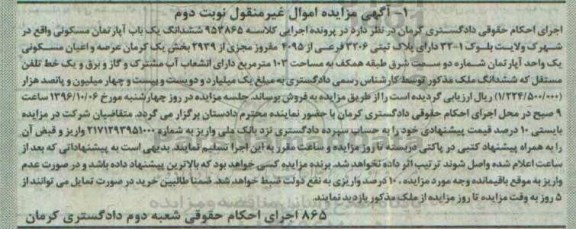 ۱- آگهی مزایده اموال غیرمنقول نوبت دوم
اجرای احکام حقوقی دادگستری کرمان در نظر دارد در پرونده اجرایی کلاسه ۹۵۳۸۶۵ ششدانگ یک باب آپارتمان مسکونی واقع در
شهرک ولایت بلوک ۱-۳۳ دارای پلاک ثبتی ۳۲۰۶ فرعی از ۴۰۹۵ مفروز مجزی از ۲۹۳۹ بخش یک کرمان عرصه و اعیان مسکونی
یک واحد آپارتمان شماره دو سمت شرق طبقه همکف به مساحت ۱۰۳ مترمربع دارای انشعاب آب مشترک و گاز و برق و یک خط تلفن
مستقل که ششدانگ ملک مذکور توسط کارشناس رسمی دادگستری به مبلغ یک میلیارد و دویست و بیست و چهار میلیون و پانصد هزار
(۱/۲۲۴/۵۰۰/۰۰۰) ریال ارزیابی گردیده است را از طریق مزایده به فروش برساند. جلسه مزایده در روز چهارشنبه مورخ ۱۳۹۶/۱۰/۰۶ ساعت
۹ صبح در محل اجرای احکام حقوقی دادگستری کرمان با حضور نماینده محترم دادستان برگزار می گردد. متقاضیان شرکت در مزایده
بایستی ۱۰ درصد قیمت پیشنهادی خود را به حساب سپرده دادگستری نزد بانک ملی واریز به شماره ۲۱۷۱۲۹۳۹۵۱۰۰۰ واریز و قبض آن
را به همراه پیشنهاد کتبی در پاکتی دربسته تا روز مزایده و ساعت مقرر به این اجرا تسلیم نمایند. بدیهی است به پیشنهاداتی که بعد از
ساعت اعلام شده واصل شوند ترتیب اثر داده نخواهد شد. برنده مزایده کسی خواهد بود که بالاترین پیشنهاد داده باشد و در صورت عدم
واریز به موقع باقیمانده وجه مورد مزایده، ۱۰ درصد واریزی به نفع دولت ضبط خواهد شد. ضمنا طالبین خرید در صورت تمایل می توانند از
۵ روز به وقت مزایده تا روز مزایده از ملک مذکور بازدید نمایند.
۸۶۵ اجرای احکام حقوقی شعبه دوم دادگستری کرمان